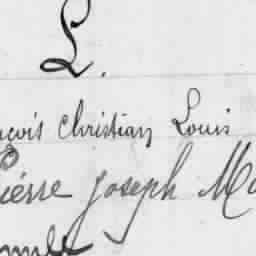 L.
ncois Christian Louis
Pierre Joseph Ma